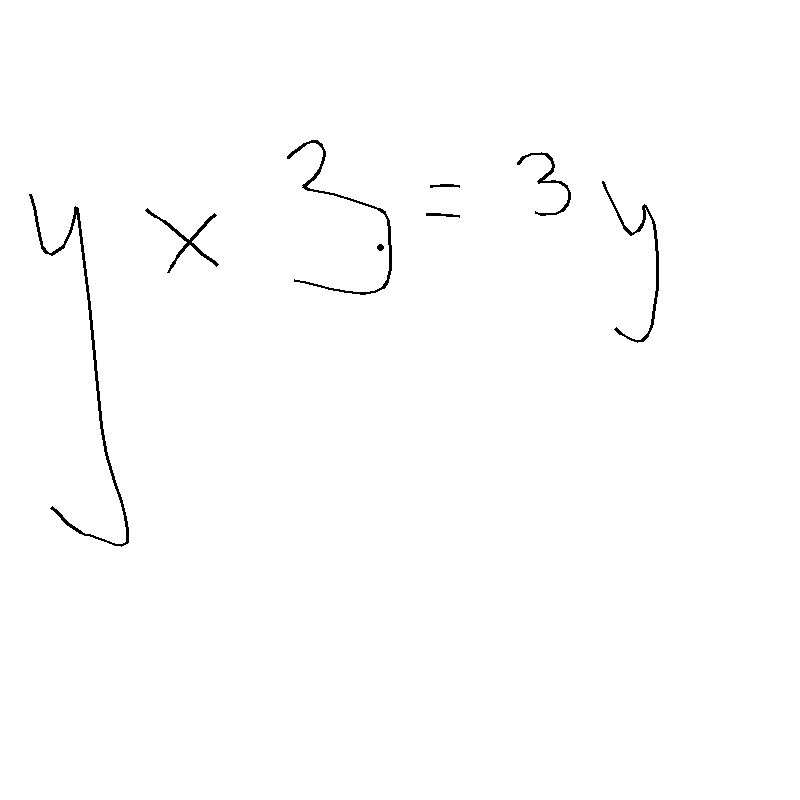 y × 3 = 3y